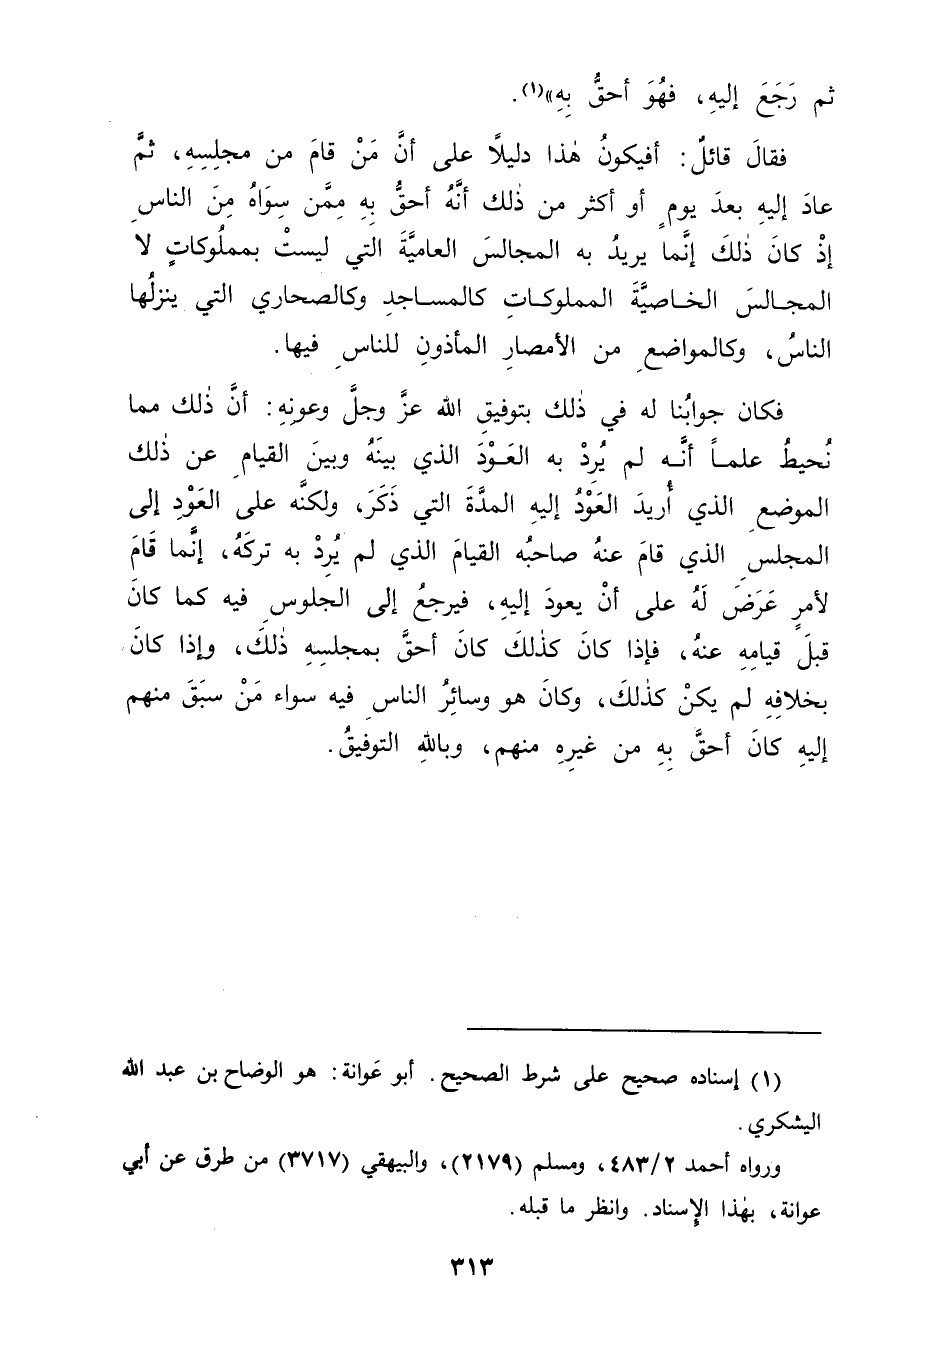 ثم رَجَعَ إليهِ، فهُوَ أحقُّ بِهِ»(١).
فقالَ قائلٌ: أفيكونُ هٰذا دليلًا على أنَّ مَنْ قامَ من مجلِسِهِ، ثمَّ
عادَ إليهِ بعدَ يومٍ أو أكثر من ذٰلك أنَّهُ أحقُّ بِهِ مِمَّن سِوَاهُ مِنَ الناسِ
إذْ كانَ ذٰلكَ إنَّما يريدُ به المجالسَ العاميَّةَ التي ليستْ بمملُوكاتٍ لا
المجالسَ الخاصيَّةَ المملوكاتِ كالمساجدِ وكالصحاري التي ينزلُها
الناسُ، وكالمواضعِ من الأمصارِ المأذونِ للناسِ فيها.
فكان جوابُنا له في ذٰلك بتوفيقِ الله عزَّ وجلَّ وعونِهِ: أنَّ ذٰلك مما
نُحيطُ علماً أنَّه لم يُرِدْ به العَوْدَ الذي بينَهُ وبينَ القيامِ عن ذٰلك
الموضعِ الذي أُريدَ العَوْدُ إليهِ المدَّةَ التي ذَكَرَ، ولكنَّه على العَوْدِ إلى
المجلسِ الذي قامَ عنهُ صاحبُه القيامَ الذي لم يُرِدْ به تركَهُ، إنَّما قَامَ
لأمرٍ عَرَضَ لَهُ على أنْ يعودَ إليهِ، فيرجعُ إلى الجلوسِ فيه كما كانَ
قبلَ قيامِهِ عنهُ، فإذا كانَ كذٰلكَ كانَ أحقَّ بمجلسِهِ ذٰلكَ، وإذا كانَ
بخلافِهِ لم يكنْ كذٰلكَ، وكانَ هو وسائرُ الناسِ فيه سواء مَنْ سبَقَ منهم
إليهِ كانَ أحقَّ بِهِ من غيرِهِ منهم، وباللهِ التوفيقُ.
(١) إسناده صحيح على شرط الصحيح. أبو عَوانة: هو الوضاح بن عبد الله
اليشكري.
ورواه أحمد ٤٨٣/٢، ومسلم (٢١٧٩)، والبيهقي (٣٧١٧) من طرق عن أبي
عوانة، بهٰذا الإسناد. وانظر ما قبله.
٣١٣